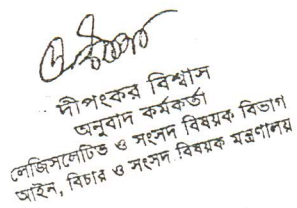 দীপংকর বিশ্বাস
অনুবাদ কর্মকর্তা
লেজিসলেটিভ ও সংসদ বিষয়ক বিভাগ
আইন, বিচার ও সংসদ বিষয়ক মন্ত্রণালয়